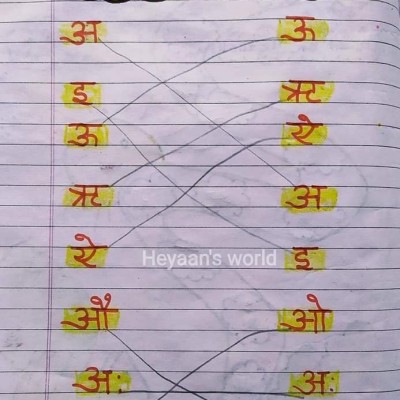 अ ऊ
इ ऋ
ऊ ऐ
ऋ अ
ऐ इ
Heyaan's world
औ ओ
अः अः